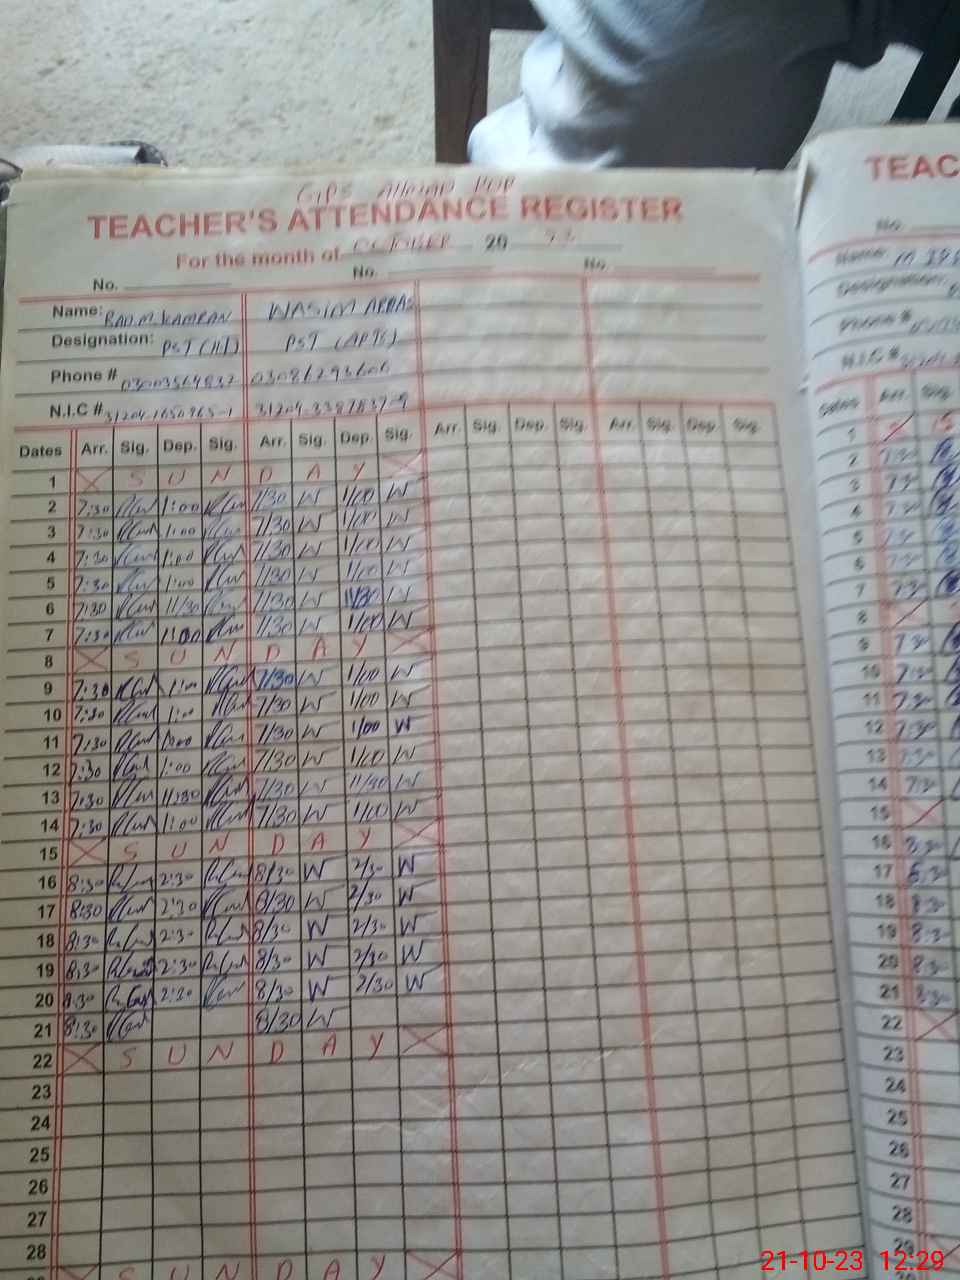 GPS AHMAD PUR
TEACHER'S ATTENDANCE REGISTER
For the month of OCTOBER 20 23
No. No. No.
Name: RAO M. KAMRAN WASIM ABBAS
Designation: PST (HT) PST (APTS)
Phone # 03003564832 03086293606
N.I.C # 31204-1650965-1 31204-3387837-9
Dates Arr. Sig. Dep. Sig. Arr. Sig. Dep. Sig. Arr. Sig. Dep. Sig. Arr. Sig. Dep. Sig.
1 S U N D A Y
2 7:30 1:00 7/30 W 1/00 W
3 7:30 1:00 7/30 W 1/00 W
4 7:30 1:00 7/30 W 1/00 W
5 7:30 1:00 7/30 W 1/00 W
6 7:30 11/30 7/30 W 11/30 W
7 7:30 1:00 7/30 W 1/00 W
8 S U N D A Y
9 7:30 1:00 7/30 W 1/00 W
10 7:30 1:00 7/30 W 1/00 W
11 7:30 1:00 7/30 W 1/00 W
12 7:30 1:00 7/30 W 1/00 W
13 7:30 11:30 7/30 W 11/30 W
14 7:30 1:00 7/30 W 1/00 W
15 S U N D A Y
16 8:30 2:30 8/30 W 2/30 W
17 8:30 2:30 8/30 W 2/30 W
18 8:30 2:30 8/30 W 2/30 W
19 8:30 2:30 8/30 W 2/30 W
20 8:30 2:30 8/30 W 2/30 W
21 8:30 8/30 W
22 S U N D A Y
23
24
25
26
27
28
S U N D A Y
TEAC
No.
Name:
Designation:
Phone #
N.I.C #
Dates Arr. Sig.
1
2 7:30
3 7:30
4 7:30
5 7:30
6 7:30
7 7:30
8
9 7:30
10 7:30
11 7:30
12 7:30
13 7:30
14 7:30
15
16 8:30
17 8:30
18 8:30
19 8:30
20 8:30
21 8:30
22
23
24
25
26
27
28
29
21-10-23 12:29